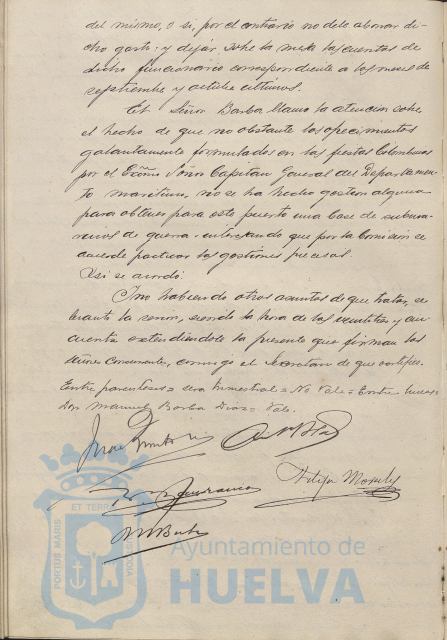 del mismo, o si, por el contrario no debe abonar di-
cho gasto: y dejar sobre la mesa las cuentas de
dicho funcionario correspondiente a los meses de
septiembre y octubre últimos.
El Señor Barba llamó la atención sobre
el hecho de que no obstante los ofrecimientos
galantemente formulados en las fiestas Colombinas
por el Excmo Señor Capitan General del Departamen-
to marítimo, no se ha hecho gestion alguna
para obtener para este puerto una base de subma-
rinos de guerra: interesando que por la Comisión se
acuerde practicar las gestiones precisas.
Así se acordó.
I no habiendo otros asuntos de que tratar, se
levantó la sesión, siendo la hora de las veintitres y cin-
cuenta extendiéndose la presente que firman los
Señores Concurrentes, conmigo el Secretario de que certifico.
Entre parentesis = sea trimestral = No Vale = Entre lineas
Don Manuel Barba Diaz = Vale.
Felipe Morales
M Barba
PORTUS MARIS ET TERRAE
Ayuntamiento de
HUELVA